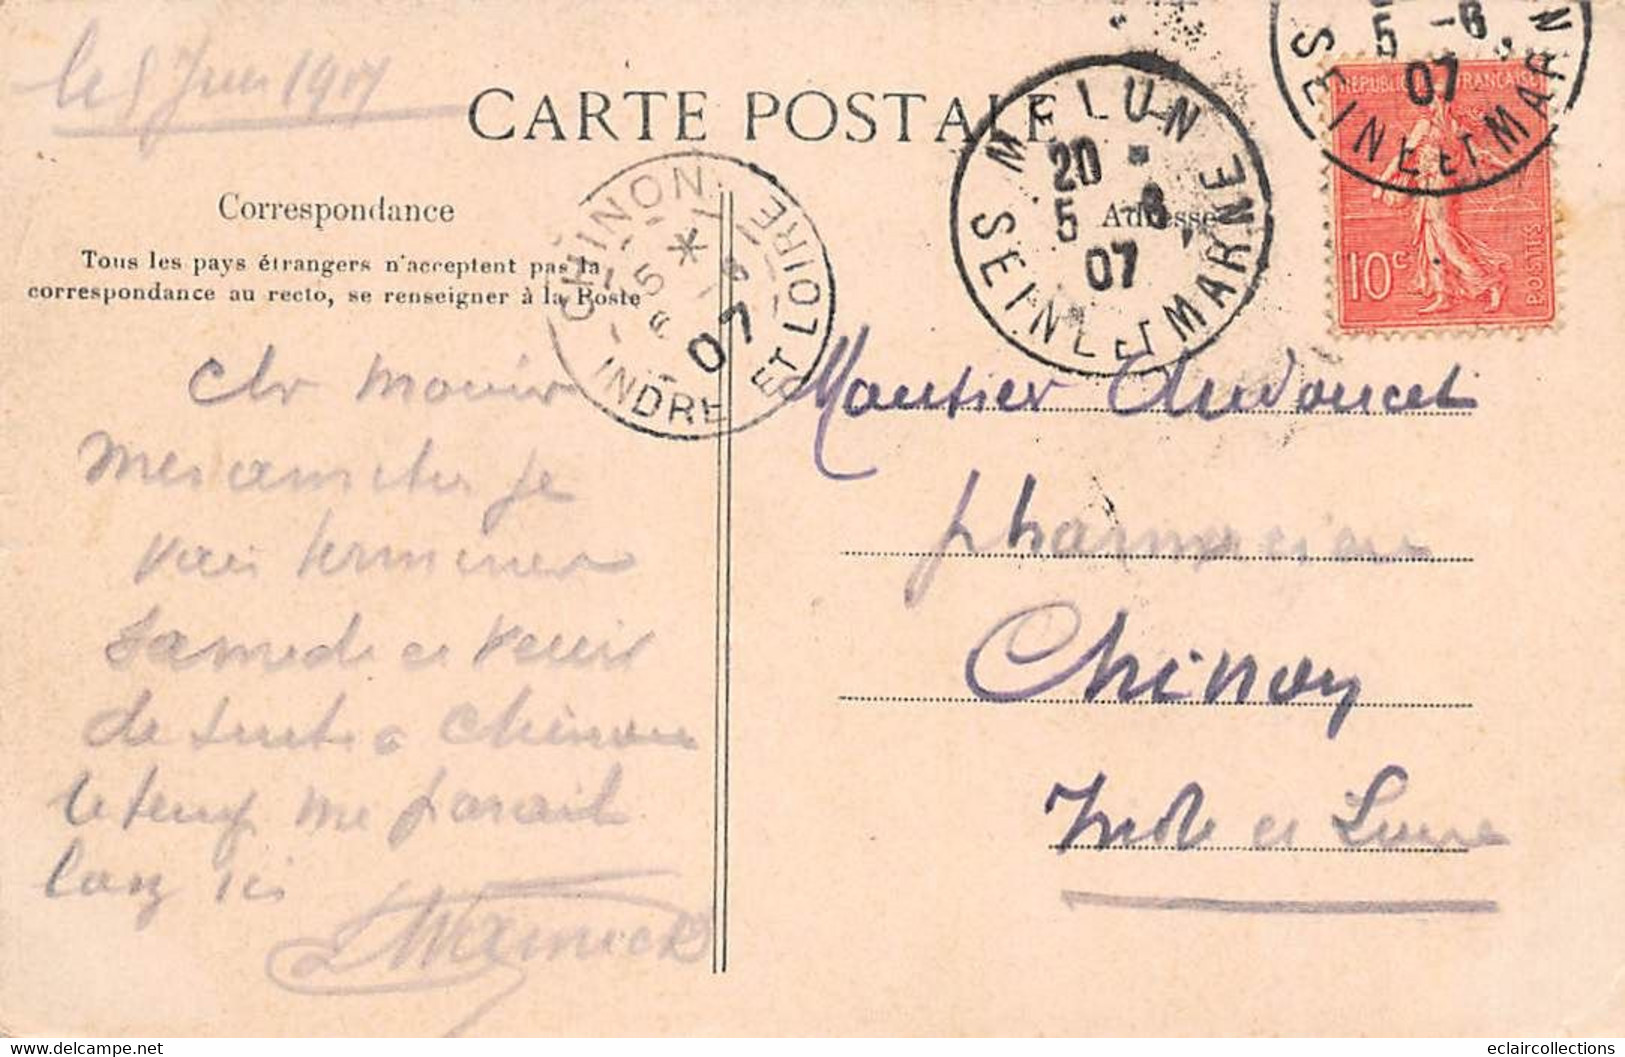 le 5 Juin 1907
CARTE POSTALE
Correspondance
Tous les pays étrangers n'acceptent pas la
correspondance au recto, se renseigner à la Poste
Adresse
MELUN
20
5 -6
07
SEINE ET MARNE
5 -6
07
SEINE ET MARN
REPUBLIQUE FRANÇAISE
10c
POSTES
CHINON
5
6
07
INDRE ET LOIRE
Monsieur Audoucet
pharmacien
Chinon
Indre et Loire
Chr
je
vais terminer
Samedi et venir
de suite a Chinon
le temps me parait
long ici
eclaircollections
delcampe.net